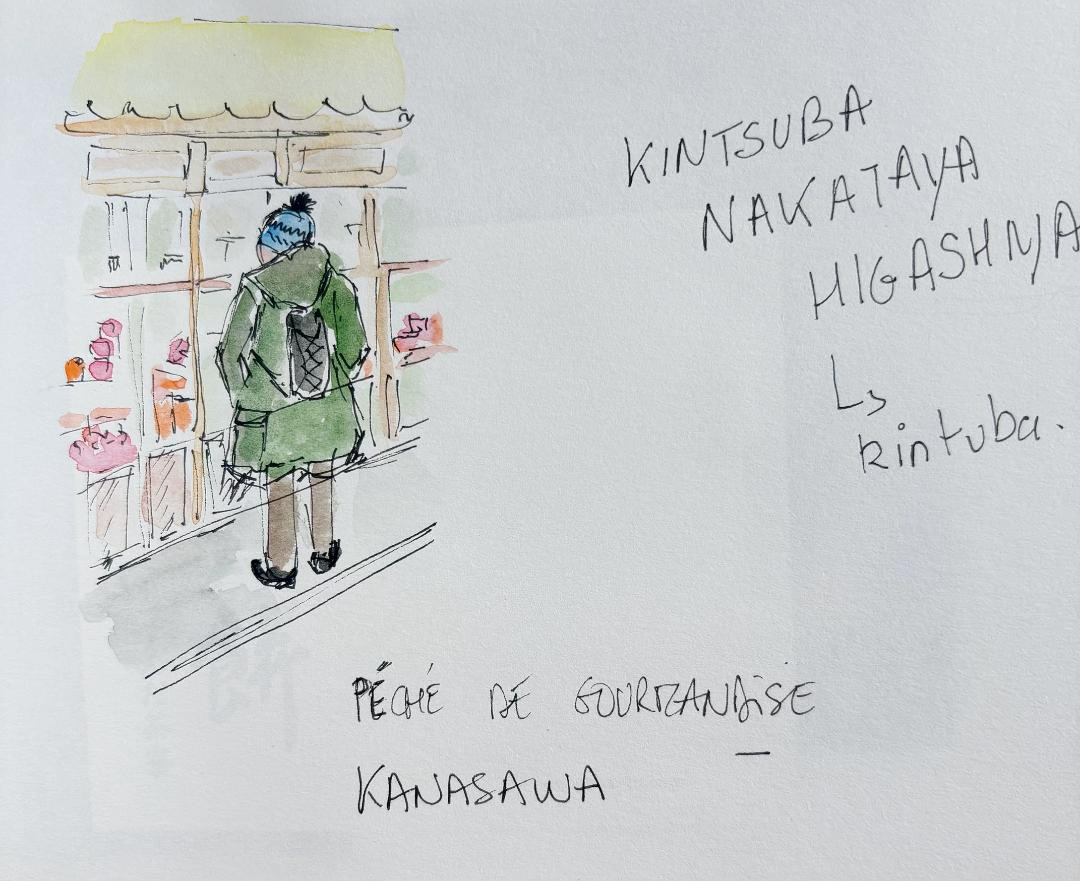 KINTSUBA
NAKATAYA
HIGASHIYA
Ls
kintuba.
PÉCHÉ DE GOURMANDISE
KANASAWA